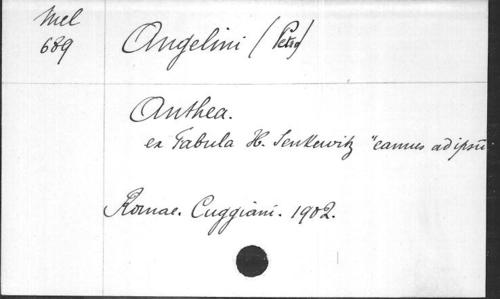 Mel
689
Angelini (Petro)
Anthea.
ex Fabula H. Senkewitz "eamus ad ipsū
Romae. Cuggiani. 1902.